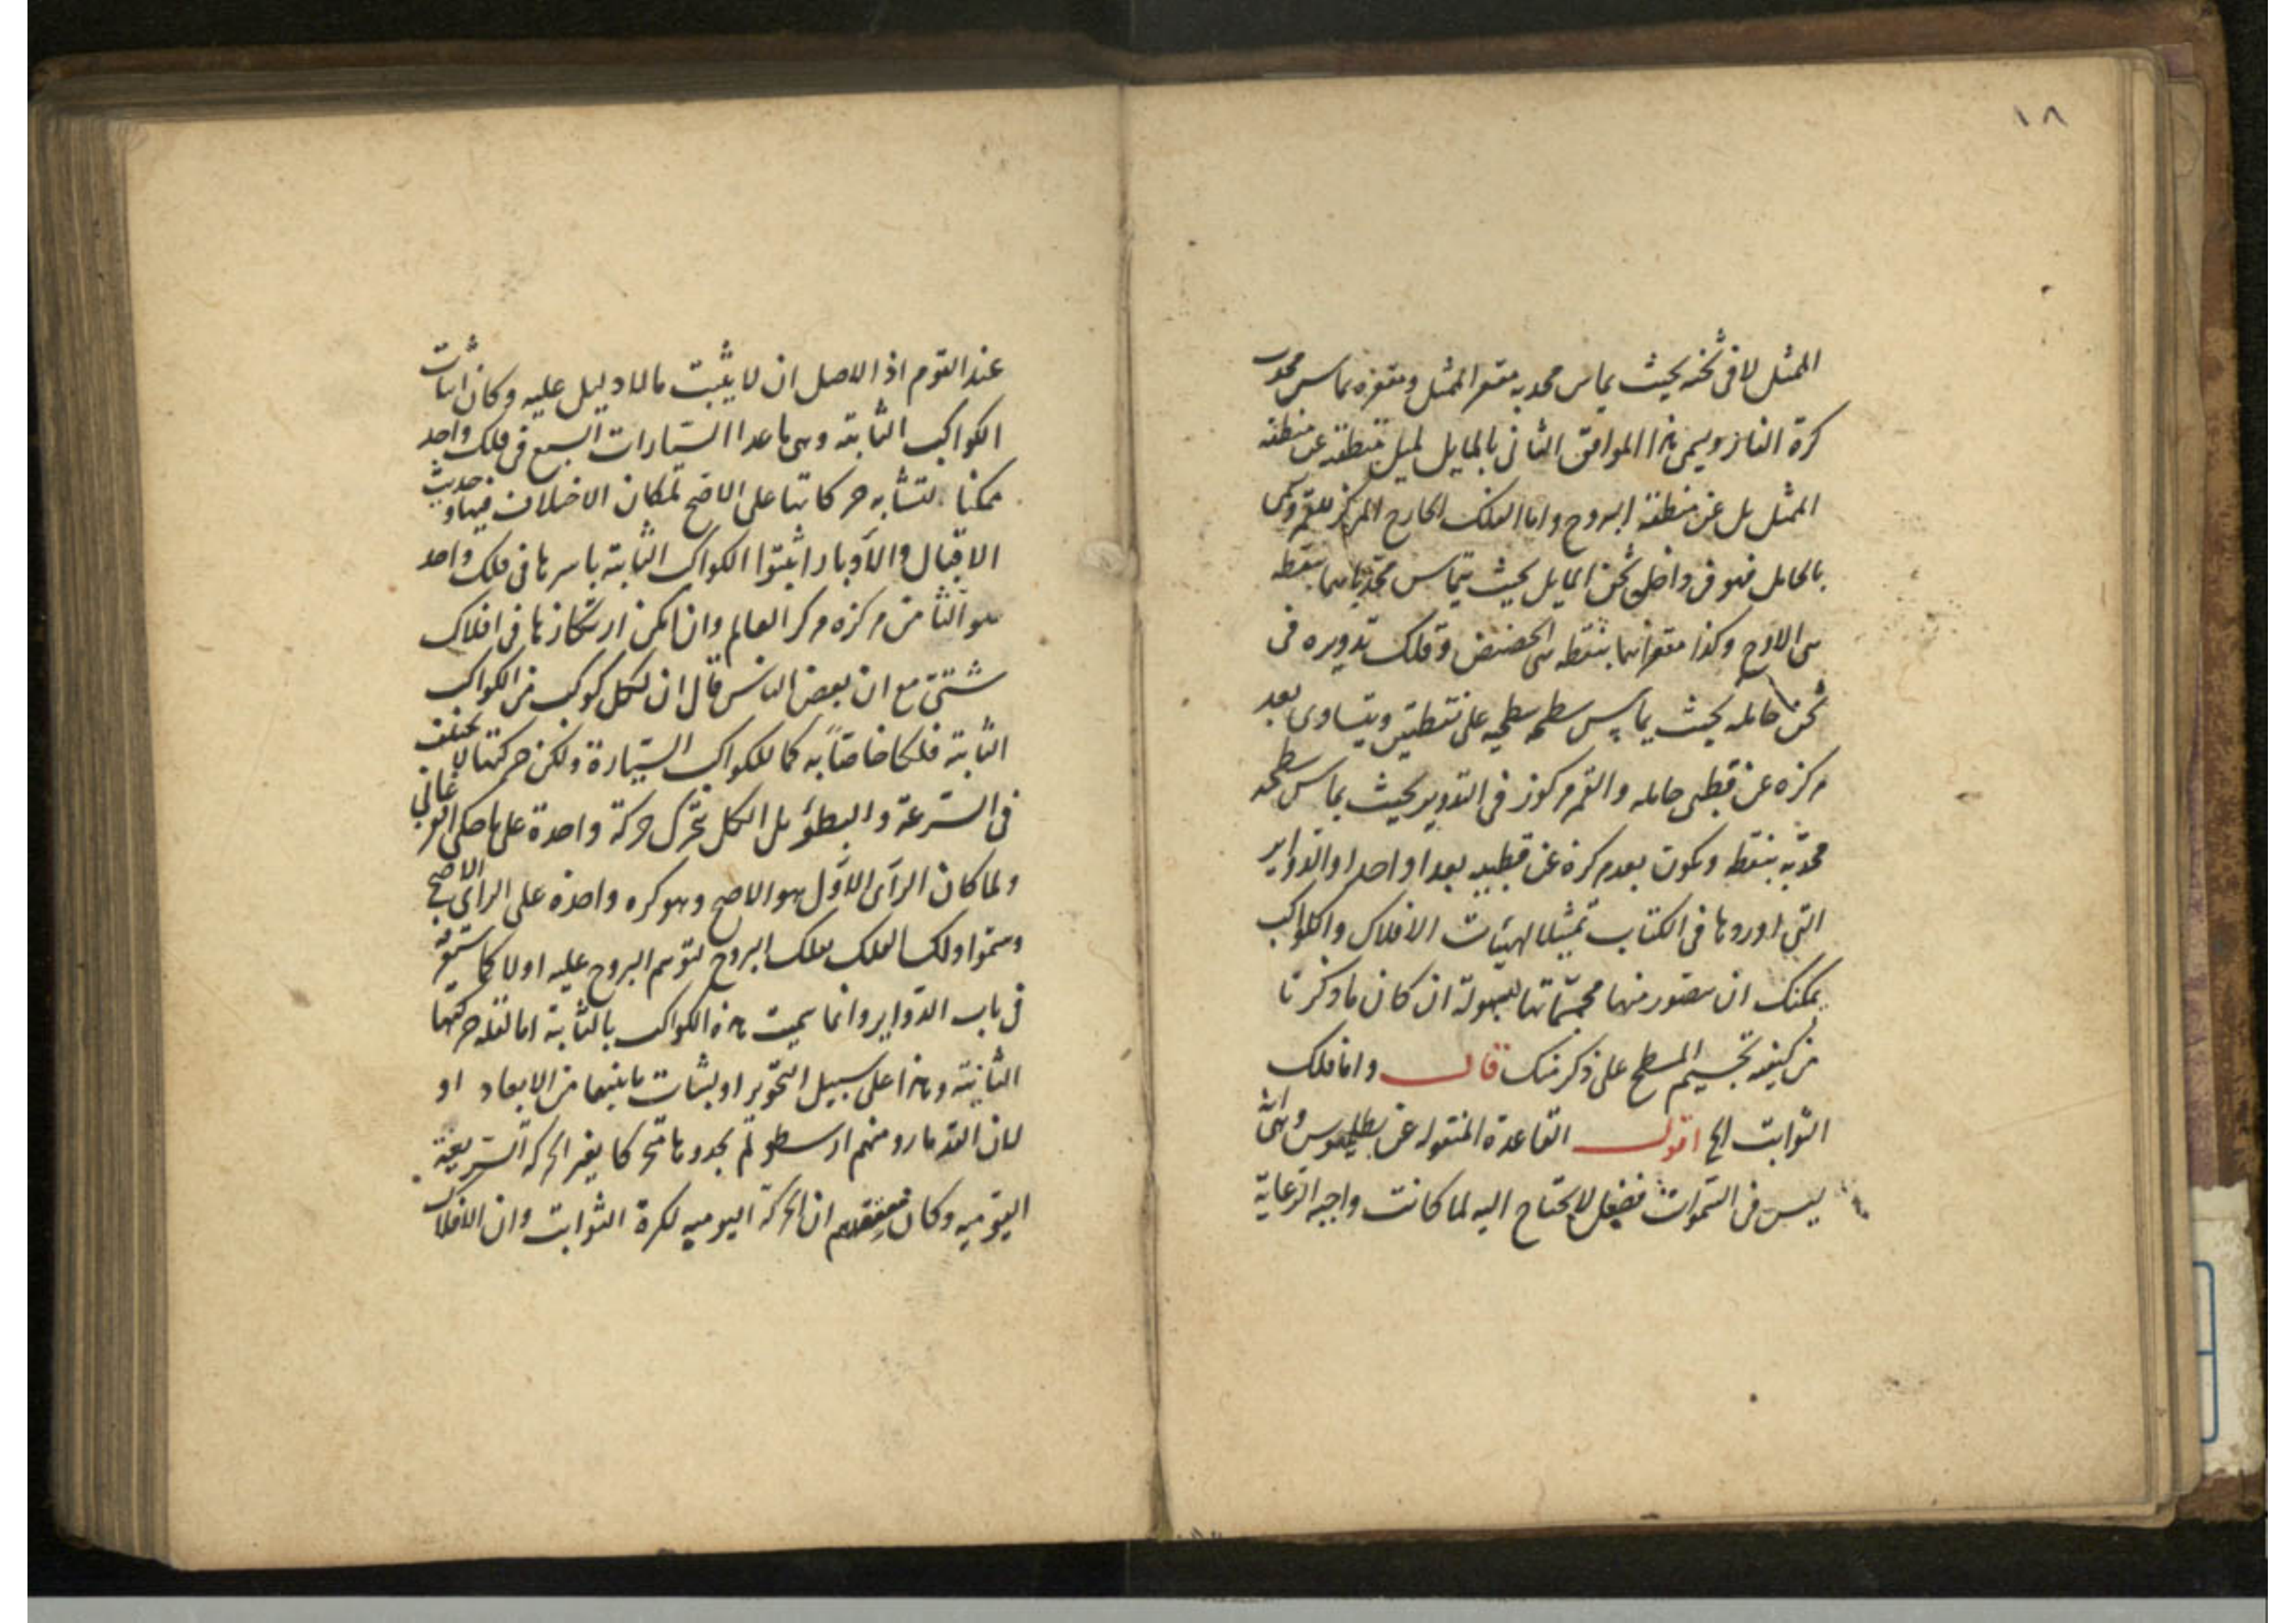 ١٨
الممثل لا فى ثخنه بحيث يماس محدبه مقعر الممثل ومقعره يماس محدب
كرة النار ويسمى هذا الموافق الثانى بالمايل لميل منطقته عن منطقة
الممثل بل عن منطقة البروج واما الفلك الخارج المركز للقمر ويسمى
بالحامل فهو فى داخل ثخن المايل بحيث يتماس محدباهما بنقطة
هى الاوج وكذا مقعراهما بنقطة هى الحضيض وفلك تدويره فى
ثخن حامله بحيث يماس سطحه سطحيه على نقطتين ويتساوى بعد
مركزه عن قطبى حامله والقمر مركوز فى التدوير بحيث يماس سطحه
محدبه بنقطة ويكون بعد مركزه عن قطبيه بعدا واحدا والدواير
التى اوردها فى الكتاب تمثيلا لهيئات الافلاك والكواكب
يمكنك ان تتصور منها مجسماتها بسهولة ان كان ما ذكرنا
من كيفية تجسيم المسطح على ذكر منك قال واما فلك
الثوابت الخ اقول القاعدة المنقولة عن بطلميوس وهى انه
ليس فى السموات فضل لا يحتاج اليه لما كانت واجبة الرعاية
عند القوم اذ الاصل ان لا يثبت ما لا دليل عليه وكان اثبات
الكواكب الثابتة وهى ما عدا السيارات السبع فى فلك واحد
ممكنا لتشابه حركاتها على الاصح لمكان الاختلاف فيها وحديث
الاقبال والادبار اثبتوا الكواكب الثابتة باسرها فى فلك واحد
هو الثامن مركزه مركز العالم وان امكن ارتكازها فى افلاك
شتى مع ان بعض الناس قال ان لكل كوكب من الكواكب
الثابتة فلكا خاصا به كما للكواكب السيارة ولكن حركتها لا تختلف
فى السرعة والبطؤ بل الكل تتحرك حركة واحدة على ما حكى الفرغانى
ولما كان الراى الاول هو الاصح وهو كره واحدة على الراى الاصح
وسموا ذلك الفلك بفلك البروج لتوهم البروج عليه اولا كما ستعرفه
فى باب الدواير وانما سميت هذه الكواكب بالثابتة اما لقلة حركتها
الثانية وهذا على سبيل التجوز او لثبات ما بينها من الابعاد او
لان القدماء ومنهم ارسطو لم يجدوها تتحركا بغير الحركة السريعة
اليومية وكان معتقدهم ان الحركة اليومية لكرة الثوابت وان الافلاك